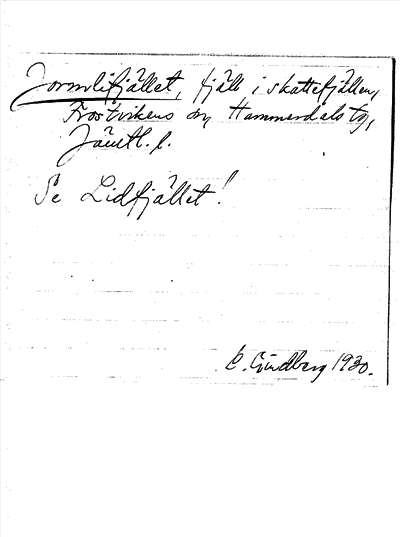 Jormlifjället, fjäll i skattefjällen,
Frostvikens sn, Hammerdals tg,
Jämtl. l.
Se Lidfjället!
C. Lindberg 1930.